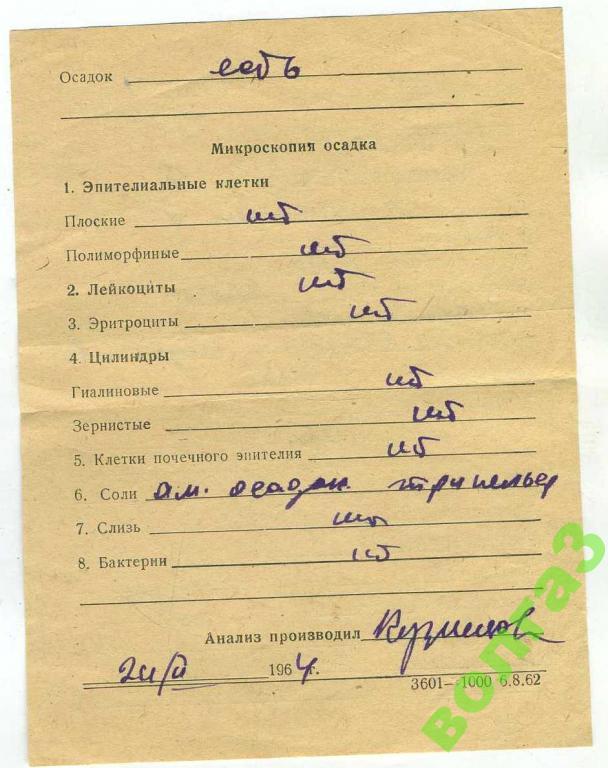 Осадок есть
Микроскопия осадка
1. Эпителиальные клетки
Плоские нет
Полиморфиные нет
2. Лейкоциты нет
3. Эритроциты нет
4. Цилиндры
Гиалиновые нет
Зернистые нет
5. Клетки почечного эпителия нет
6. Соли ам. осадок
7. Слизь нет
8. Бактерии нет
Анализ производил
1964 г.
3601—1000 6.8.62
волгаз